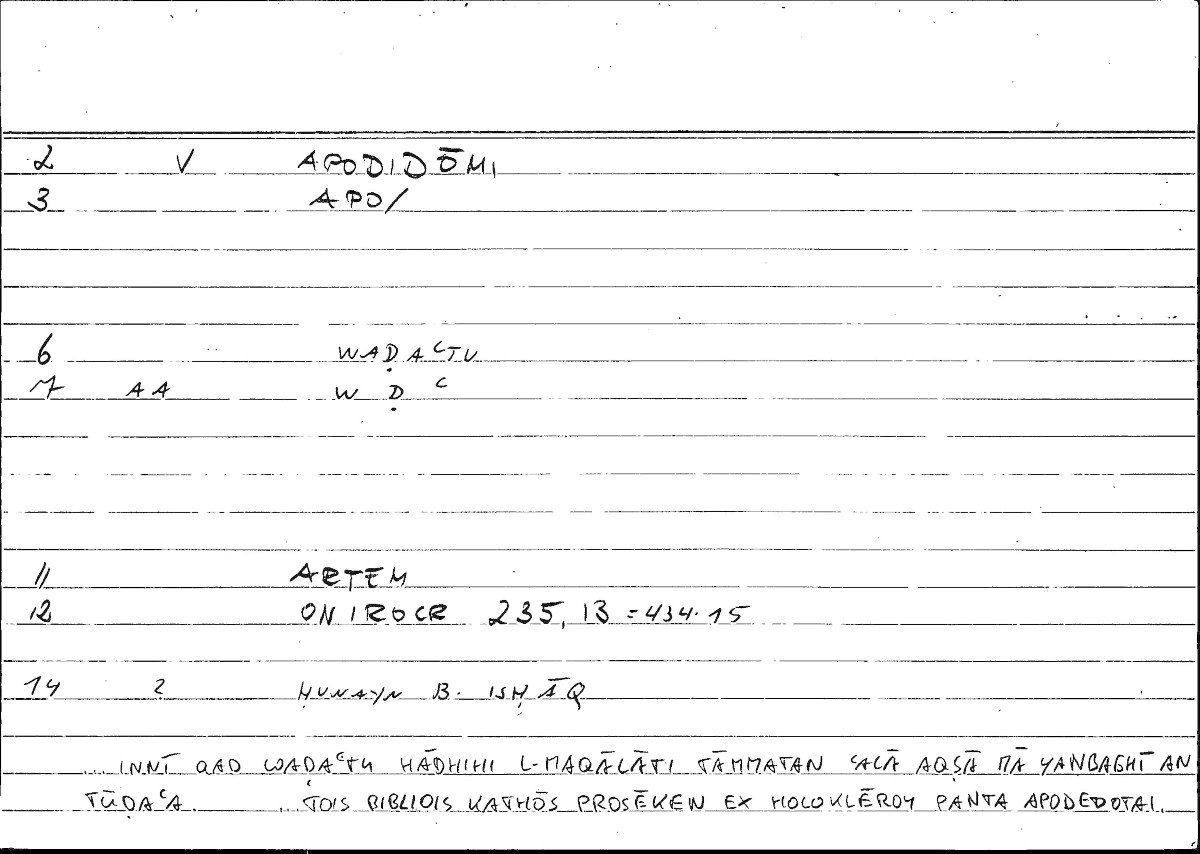 2 V APODIDŌMI
3 APO/
6 WAḌAᶜTU
7 AA W Ḍ ᶜ
11 ARTEM
12 ONIROCR 235, 13 = 434.15
14 2 ḤUNAYN B. ISḤĀQ
... INNĪ QAD WAḌAᶜTU HĀDHIHI L-MAQĀLĀTI TĀMMATAN ᶜALĀ AQṢĀ MĀ YANBAGHĪ AN
TŪḌAᶜA. ... TOIS BIBLIOIS KATHŌS PROSĒKEN EX HOLOKLĒROY PANTA APODEDOTAI.